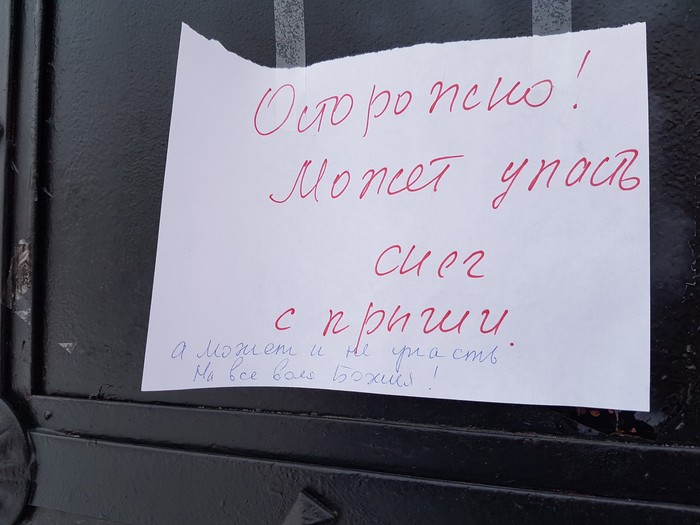 Осторожно!
Может упасть
снег
с крыши.
а может и не упасть
На все воля Божия!